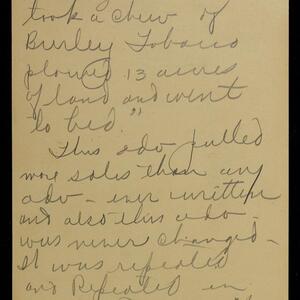 took a chew of
Burley Tobacco
plowed 13 acres
of land and went
to bed."
This adv pulled
more sales than any
adv - ever written
and also this adv -
was never changed -
it was repeated
and Repeated in